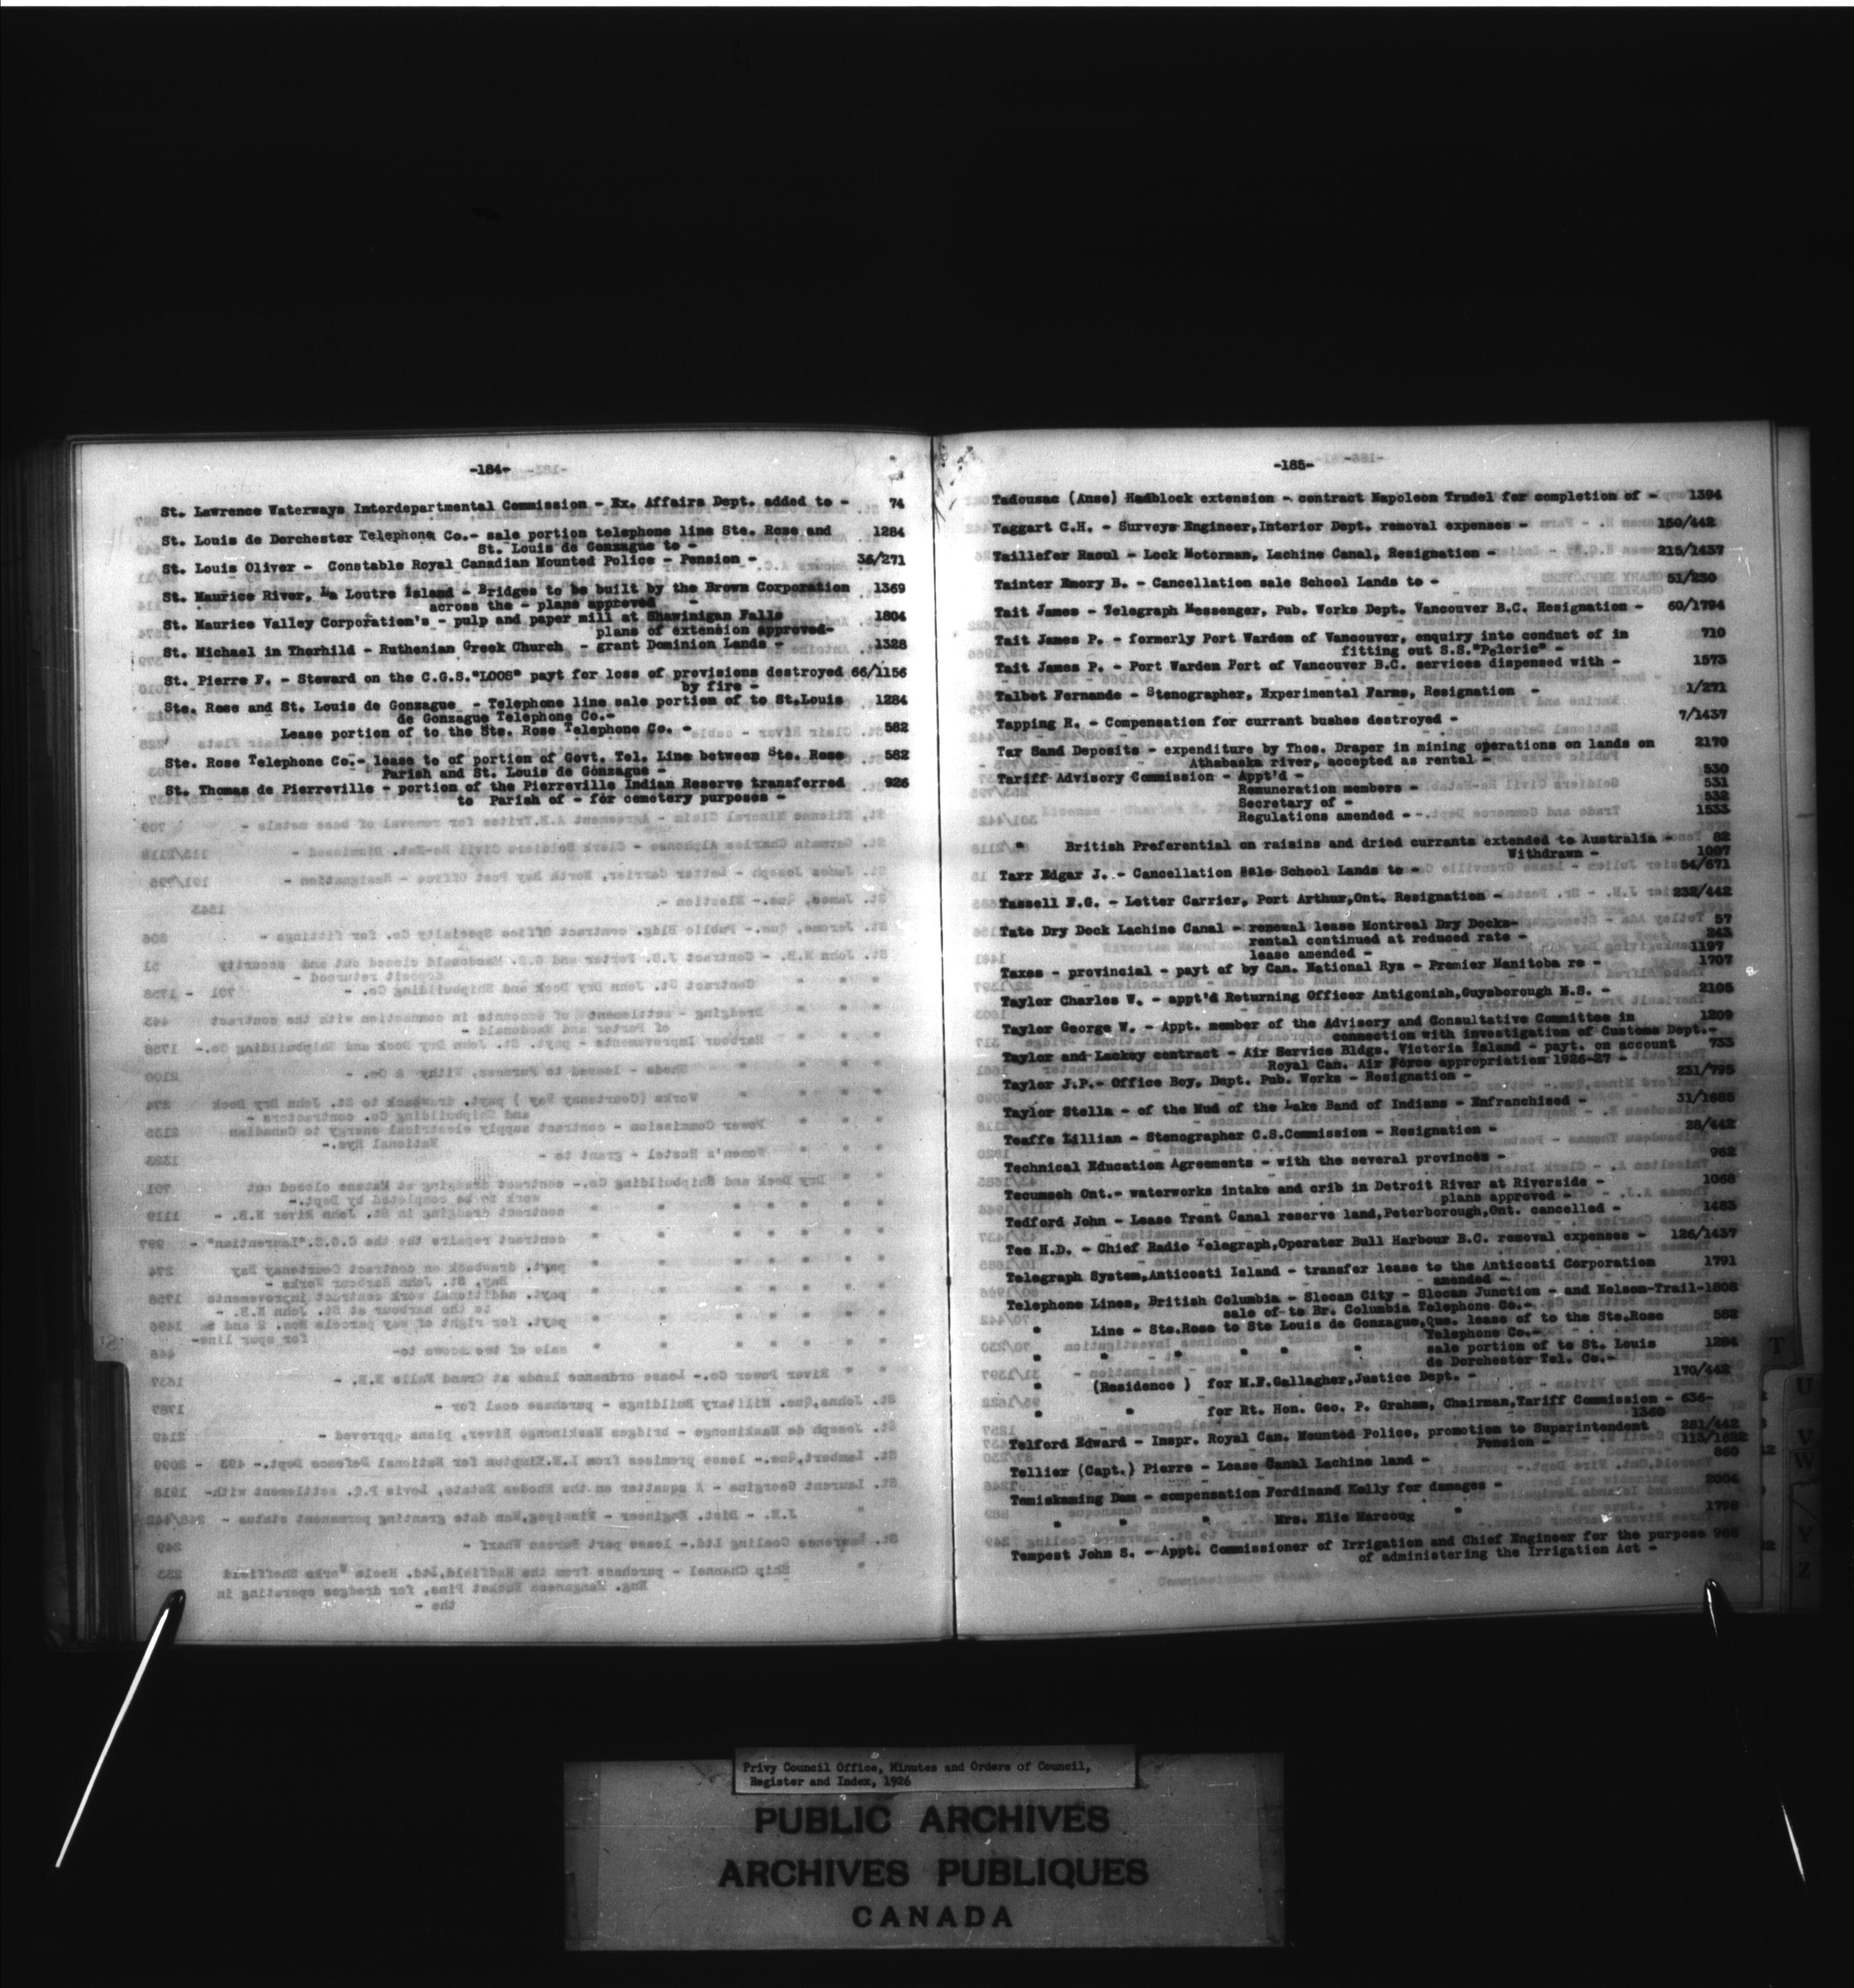 -184-
St. Lawrence Waterways Interdepartmental Commission - Ex. Affairs Dept. added to - 74
St. Louis de Dorchester Telephone Co.- sale portion telephone line Ste. Rose and 1284
St. Louis de Gonzague to -
St. Louis Oliver - Constable Royal Canadian Mounted Police - Pension - 36/271
St. Maurice River, La Loutre Island - Bridges to be built by the Brown Corporation 1369
across the - plans approved -
St. Maurice Valley Corporation's - pulp and paper mill at Shawinigan Falls 1804
plans of extension approved-
St. Michael in Thorhild - Ruthenian Greek Church - grant Dominion Lands - 1328
St. Pierre F. - Steward on the C.G.S."LOOS" payt for loss of provisions destroyed 66/1156
by fire -
Ste. Rose and St. Louis de Gonzague - Telephone line sale portion of to St.Louis 1284
de Gonzague Telephone Co.-
Lease portion of to the Ste. Rose Telephone Co. - 582
Ste. Rose Telephone Co.- lease to of portion of Govt. Tel. Line between Ste. Rose 582
Parish and St. Louis de Gonzague -
St. Thomas de Pierreville - portion of the Pierreville Indian Reserve transferred 926
to Parish of - for cemetery purposes -
-185-
Tadousac (Anse) Hadblock extension - contract Napoleon Trudel for completion of - 1394
Taggart C.H. - Surveys Engineer,Interior Dept. removal expenses - 150/442
Taillefer Raoul - Lock Motorman, Lachine Canal, Resignation - 215/1437
Tainter Emory B. - Cancellation sale School Lands to - 51/230
Tait James - Telegraph Messenger, Pub. Works Dept. Vancouver B.C. Resignation - 60/1794
Tait James P. - formerly Port Warden of Vancouver, enquiry into conduct of in 710
fitting out S.S."Poleric" -
Tait James P. - Port Warden Port of Vancouver B.C. services dispensed with - 1573
Talbot Fernande - Stenographer, Experimental Farms, Resignation - 1/271
Tapping R. - Compensation for currant bushes destroyed - 7/1437
Tar Sand Deposits - expenditure by Thos. Draper in mining operations on lands on 2170
Athabaska river, accepted as rental -
Tariff Advisory Commission - Appt'd - 530
Remuneration members - 531
Secretary of - 532
Regulations amended - 1533
" British Preferential on raisins and dried currants extended to Australia - 82
Withdrawn - 1007
Tarr Edgar J. - Cancellation Sale School Lands to - 54/671
Tassell F.G. - Letter Carrier, Port Arthur,Ont. Resignation - 232/442
Tate Dry Dock Lachine Canal - renewal lease Montreal Dry Docks- 57
rental continued at reduced rate - 243
lease amended - 1197
Taxes - provincial - payt of by Can. National Rys - Premier Manitoba re - 1707
Taylor Charles W. - appt'd Returning Officer Antigonish,Guysborough N.S. - 2105
Taylor George W. - Appt. member of the Advisory and Consultative Committee in 1209
connection with investigation of Customs Dept.-
Taylor and Lackey contract - Air Service Bldgs. Victoria Island - payt. on account 733
Royal Can. Air Force appropriation 1926-27 -
Taylor J.P.- Office Boy, Dept. Pub. Works - Resignation - 231/795
Taylor Stella - of the Mud of the Lake Band of Indians - Enfranchised - 31/1685
Teaffe Lillian - Stenographer C.S.Commission - Resignation - 28/442
Technical Education Agreements - with the several provinces - 962
Tecumseh Ont.- waterworks intake and crib in Detroit River at Riverside - 1068
plans approved -
Tedford John - Lease Trent Canal reserve land,Peterborough,Ont. cancelled - 1483
Tee H.D. - Chief Radio Telegraph,Operator Bull Harbour B.C. removal expenses - 126/1437
Telegraph System,Anticosti Island - transfer lease to the Anticosti Corporation 1791
amended -
Telephone Lines, British Columbia - Slocan City - Slocan Junction - and Nelson-Trail-1808
sale of to Br. Columbia Telephone Co.-
" Line - Ste.Rose to Ste Louis de Gonzague,Que. lease of to the Ste.Rose 582
Telephone Co.-
" " " " " " sale portion of to St. Louis 1284
de Dorchester Tel. Co.-
" (Residence ) for M.F.Gallagher,Justice Dept. - 170/442
" " for Rt. Hon. Geo. P. Graham, Chairman,Tariff Commission - 636-
1360
Telford Edward - Inspr. Royal Can. Mounted Police, promotion to Superintendent 281/442
Pension - 113/1622
Tellier (Capt.) Pierre - Lease Canal Lachine land - 860
Temiskaming Dam - compensation Ferdinand Kelly for damages - 2004
" " " Mrs. Elie Marcoux " 1798
Tempest John S. - Appt. Commissioner of Irrigation and Chief Engineer for the purpose 968
of administering the Irrigation Act -
T
U
V
W
V
Z
Privy Council Office, Minutes and Orders of Council,
Register and Index, 1926
PUBLIC ARCHIVES
ARCHIVES PUBLIQUES
CANADA